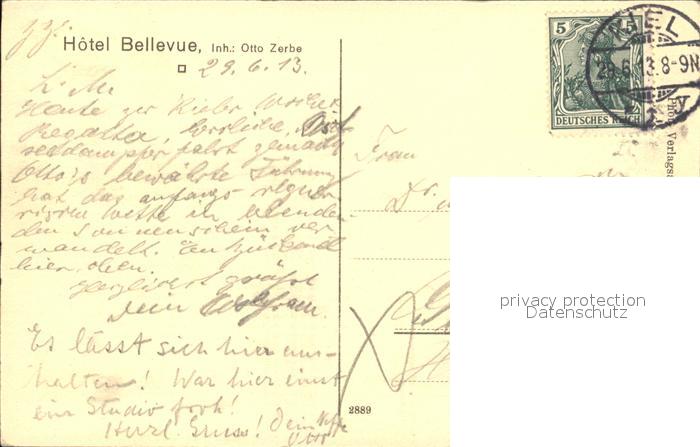 Hôtel Bellevue, Inh.: Otto Zerbe
29.6.13.
L. M.
Heute zur Kieler Woche
Regatta, herrliche
seedampferfahrt gemacht
Otto's bewährte Führung
hat das anfangs regne-
rische Wetter in blenden-
den Sonnenschein ver-
wandelt. Entzückend
hier oben.
Herzlichst grüßt
Dein Wolfram.
Es lässt sich hier aus-
halten! War hier einst
ein Studio froh!
Herzl. Gruss! Dein Otto
Frau
Dr.
5 5
DEUTSCHES REICH
KIEL
29.6.13.8-9N
2889
privacy protection
Datenschutz